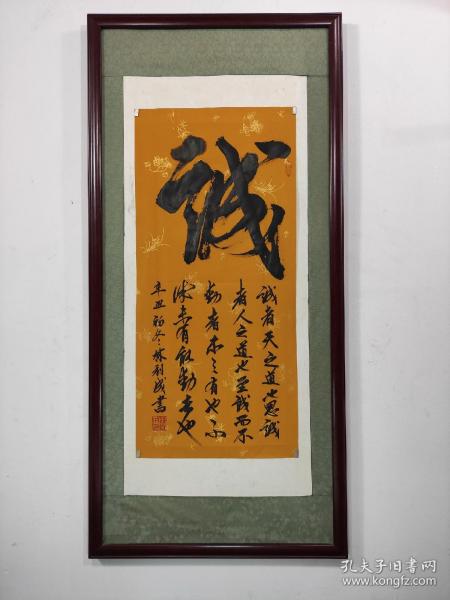 誠
誠者天之道也思誠
者人之道也至誠而不
動者未之有也不
誠未有能動者也
辛丑初冬林書
孔夫子旧书网
www.kongfz.com